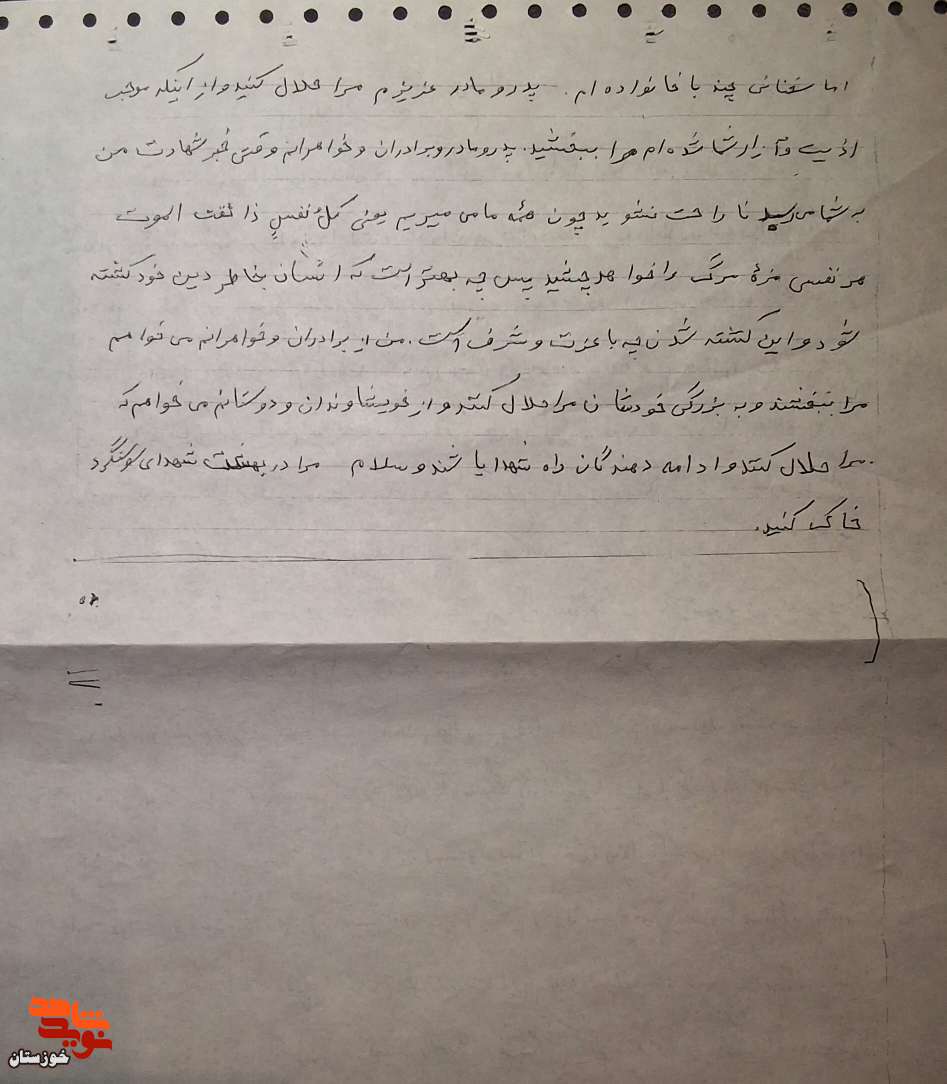 اما سخنانی چند با خانواده ام. پدر و مادر عزیزم مرا حلال کنید و از اینکه موجب
اذیت و آزار شما شده ام مرا ببخشید. پدر و مادر و برادران و خواهرانم وقتی خبر شهادت من
به شما می رسد ناراحت نشوید چون همه ما می میریم یعنی کلُ نفسٍ ذائقت الموت
هر نفسی مزهٔ مرگ را خواهد چشید پس چه بهتر است که انسان بخاطر دین خود کشته
شود و این کشته شدن چه با عزت و شرف است. من از برادران و خواهرانم می خواهم
مرا ببخشند و به بزرگی خودشان مرا حلال کنند و از خویشاوندان و دوستانم می خواهم که
مرا حلال کنند و ادامه دهندگان راه شهدا باشند و سلام مرا در بهشت شهدای سوسنگرد
خاک کنید.
نوید شاهد
خوزستان